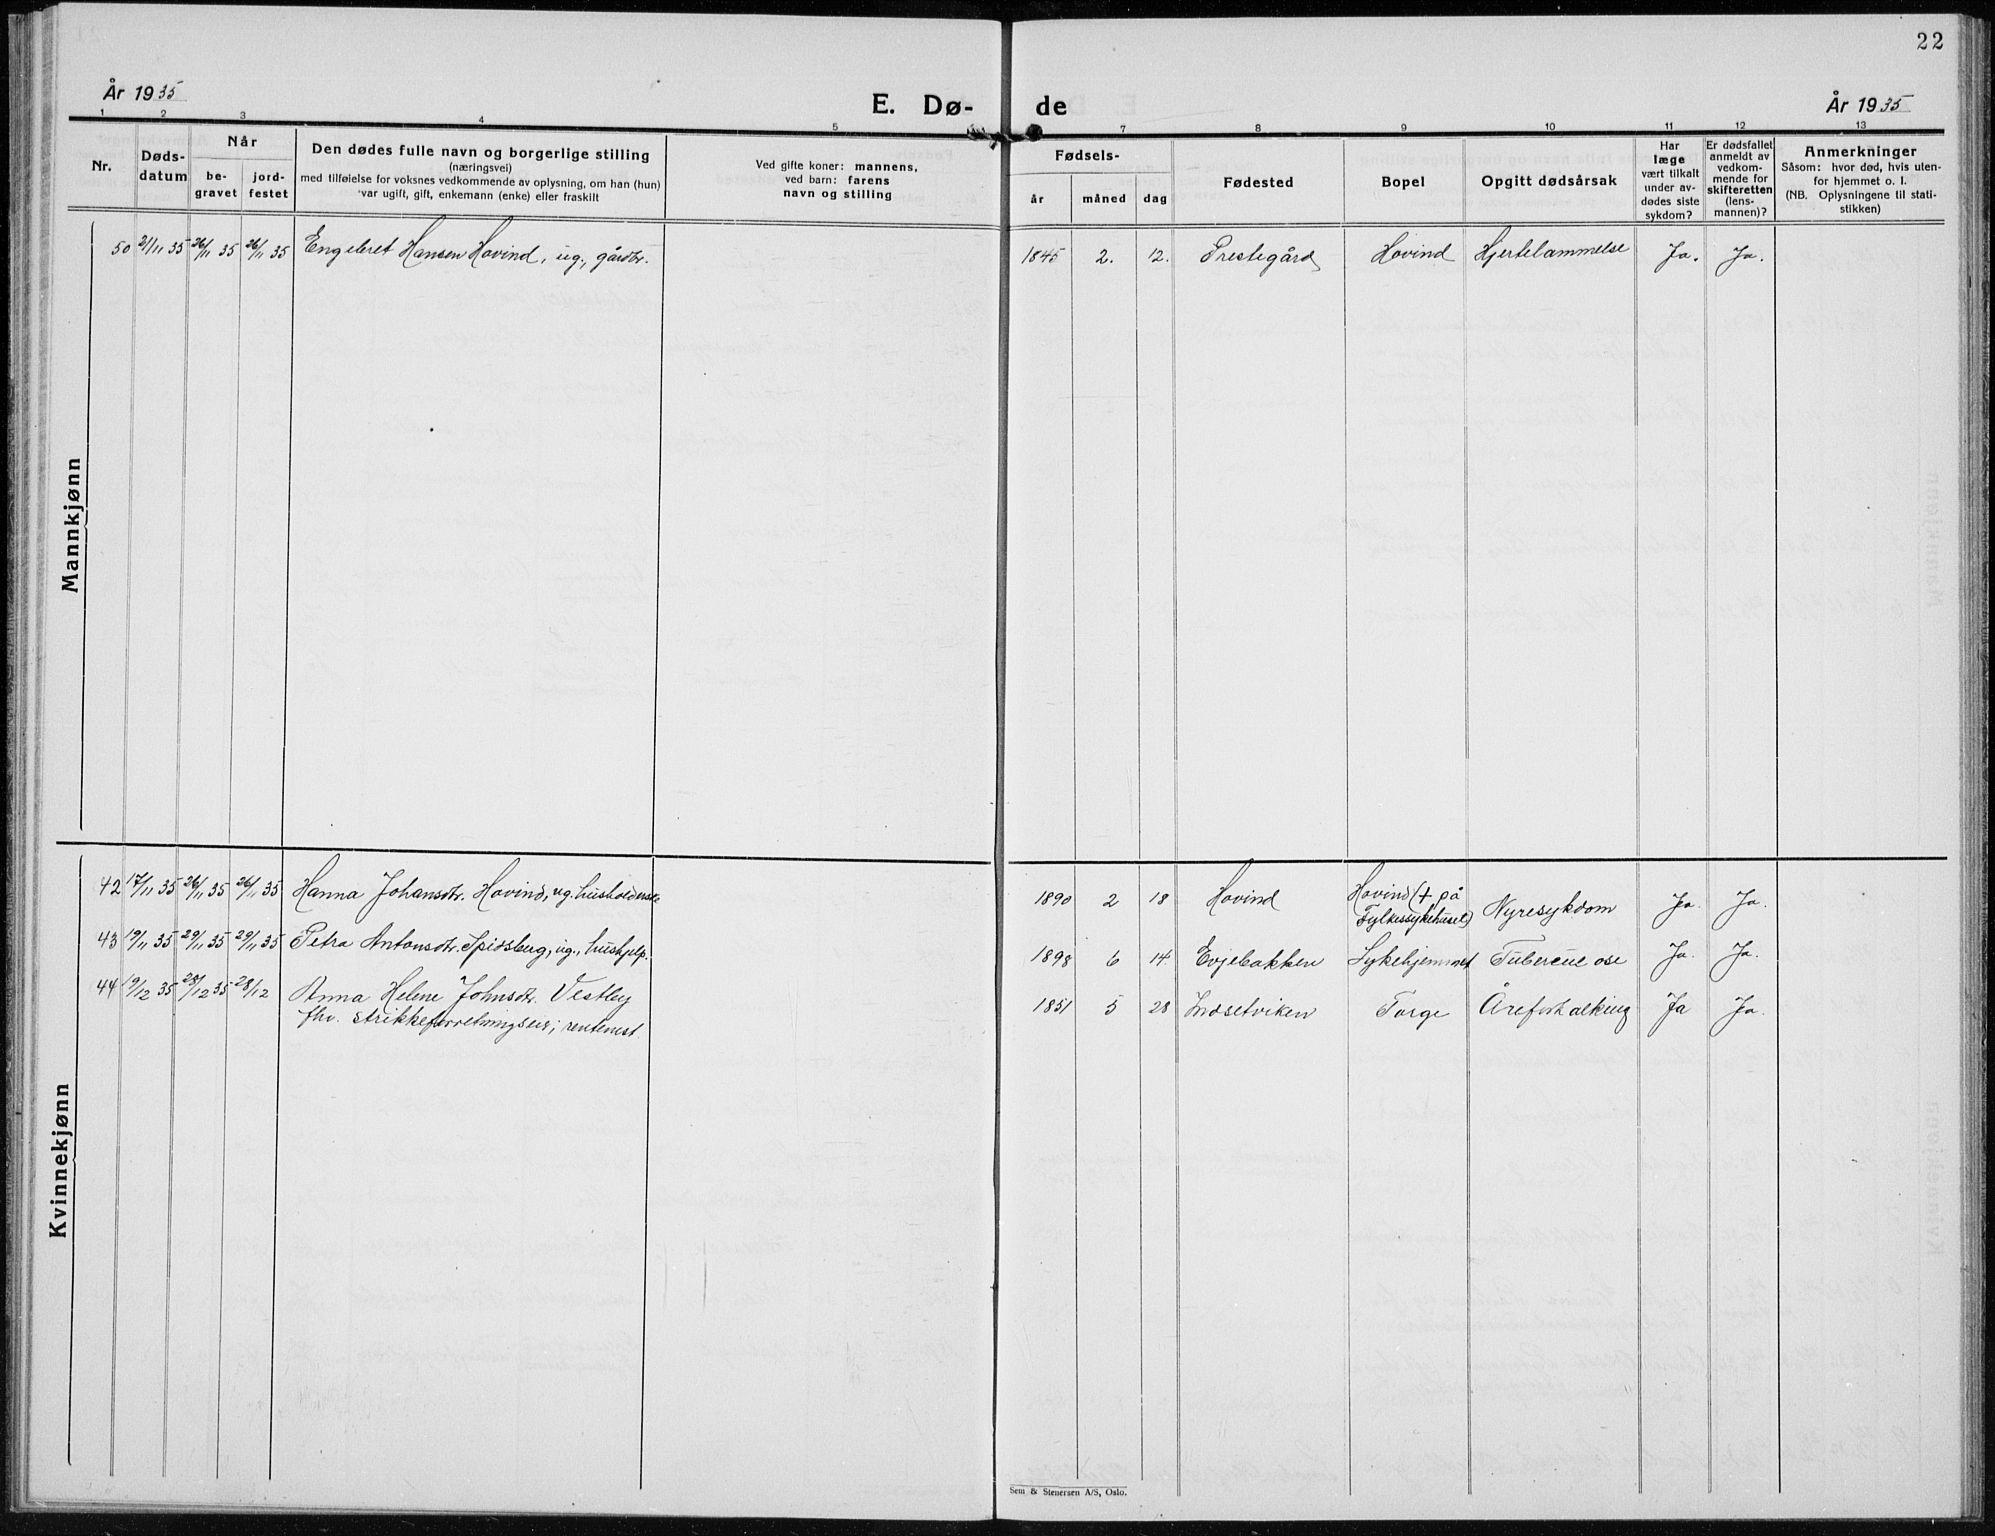 22
År 1935
E. Dø-
de
År 1935
1 2 3 4 5 7 8 9 10 11 12 13
Nr.
Døds-
datum
Når
be-
gravet
jord-
festet
Den dødes fulle navn og borgerlige stilling
(næringsvei)
med tilføielse for voksnes vedkommende av oplysning, om han (hun)
var ugift, gift, enkemann (enke) eller fraskilt
Ved gifte koner: mannens,
ved barn: farens
navn og stilling
Fødsels-
år måned dag
Fødested
Bopel
Opgitt dødsårsak
Har
læge
vært tilkalt
under av-
dødes siste
sykdom?
Er dødsfallet
anmeldt av
vedkom-
mende for
skifteretten
(lens-
mannen)?
Anmerkninger
Såsom: hvor død, hvis uten-
for hjemmet o. l.
(NB. Oplysningene til stati-
stikken)
Mannkjønn
50 21/11 35 26/11 35 26/11 35 Engebret Hansen Hovind, ug., gårdbr. 1845 2. 12. Prestegård Hovind Hjertelammelse Ja. Ja.
Kvinnekjønn
42 17/11 35 26/11 35 26/11 35 Hanna Johansdtr. Hovind, ug. husholderske 1890 2 18 Hovind Hovind († på
Fylkessykehuset) Nyresykdom Ja. Ja.
43 19/11 35 29/11 35 29/11 35 Petra Antonsdtr. Spidsberg, ug., hushjelp. 1898 6 14. Evjebakken Sykehjemmet Tuberculose Ja. Ja.
44 19/12 35 28/12 35 28/12 Anna Helene Johnsdtr. Vestby 1851 5 28 Indsetviken Torge Åreforkalking Ja Ja.
fhv. strikkeforretningseier; rentenist.
Sem & Stenersen A/S, Oslo.